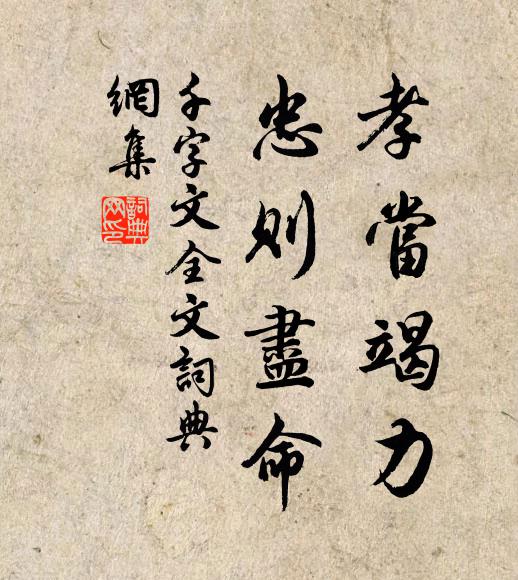 孝當竭力
忠則盡命
千字文全文詞典
網集
詞典
网印